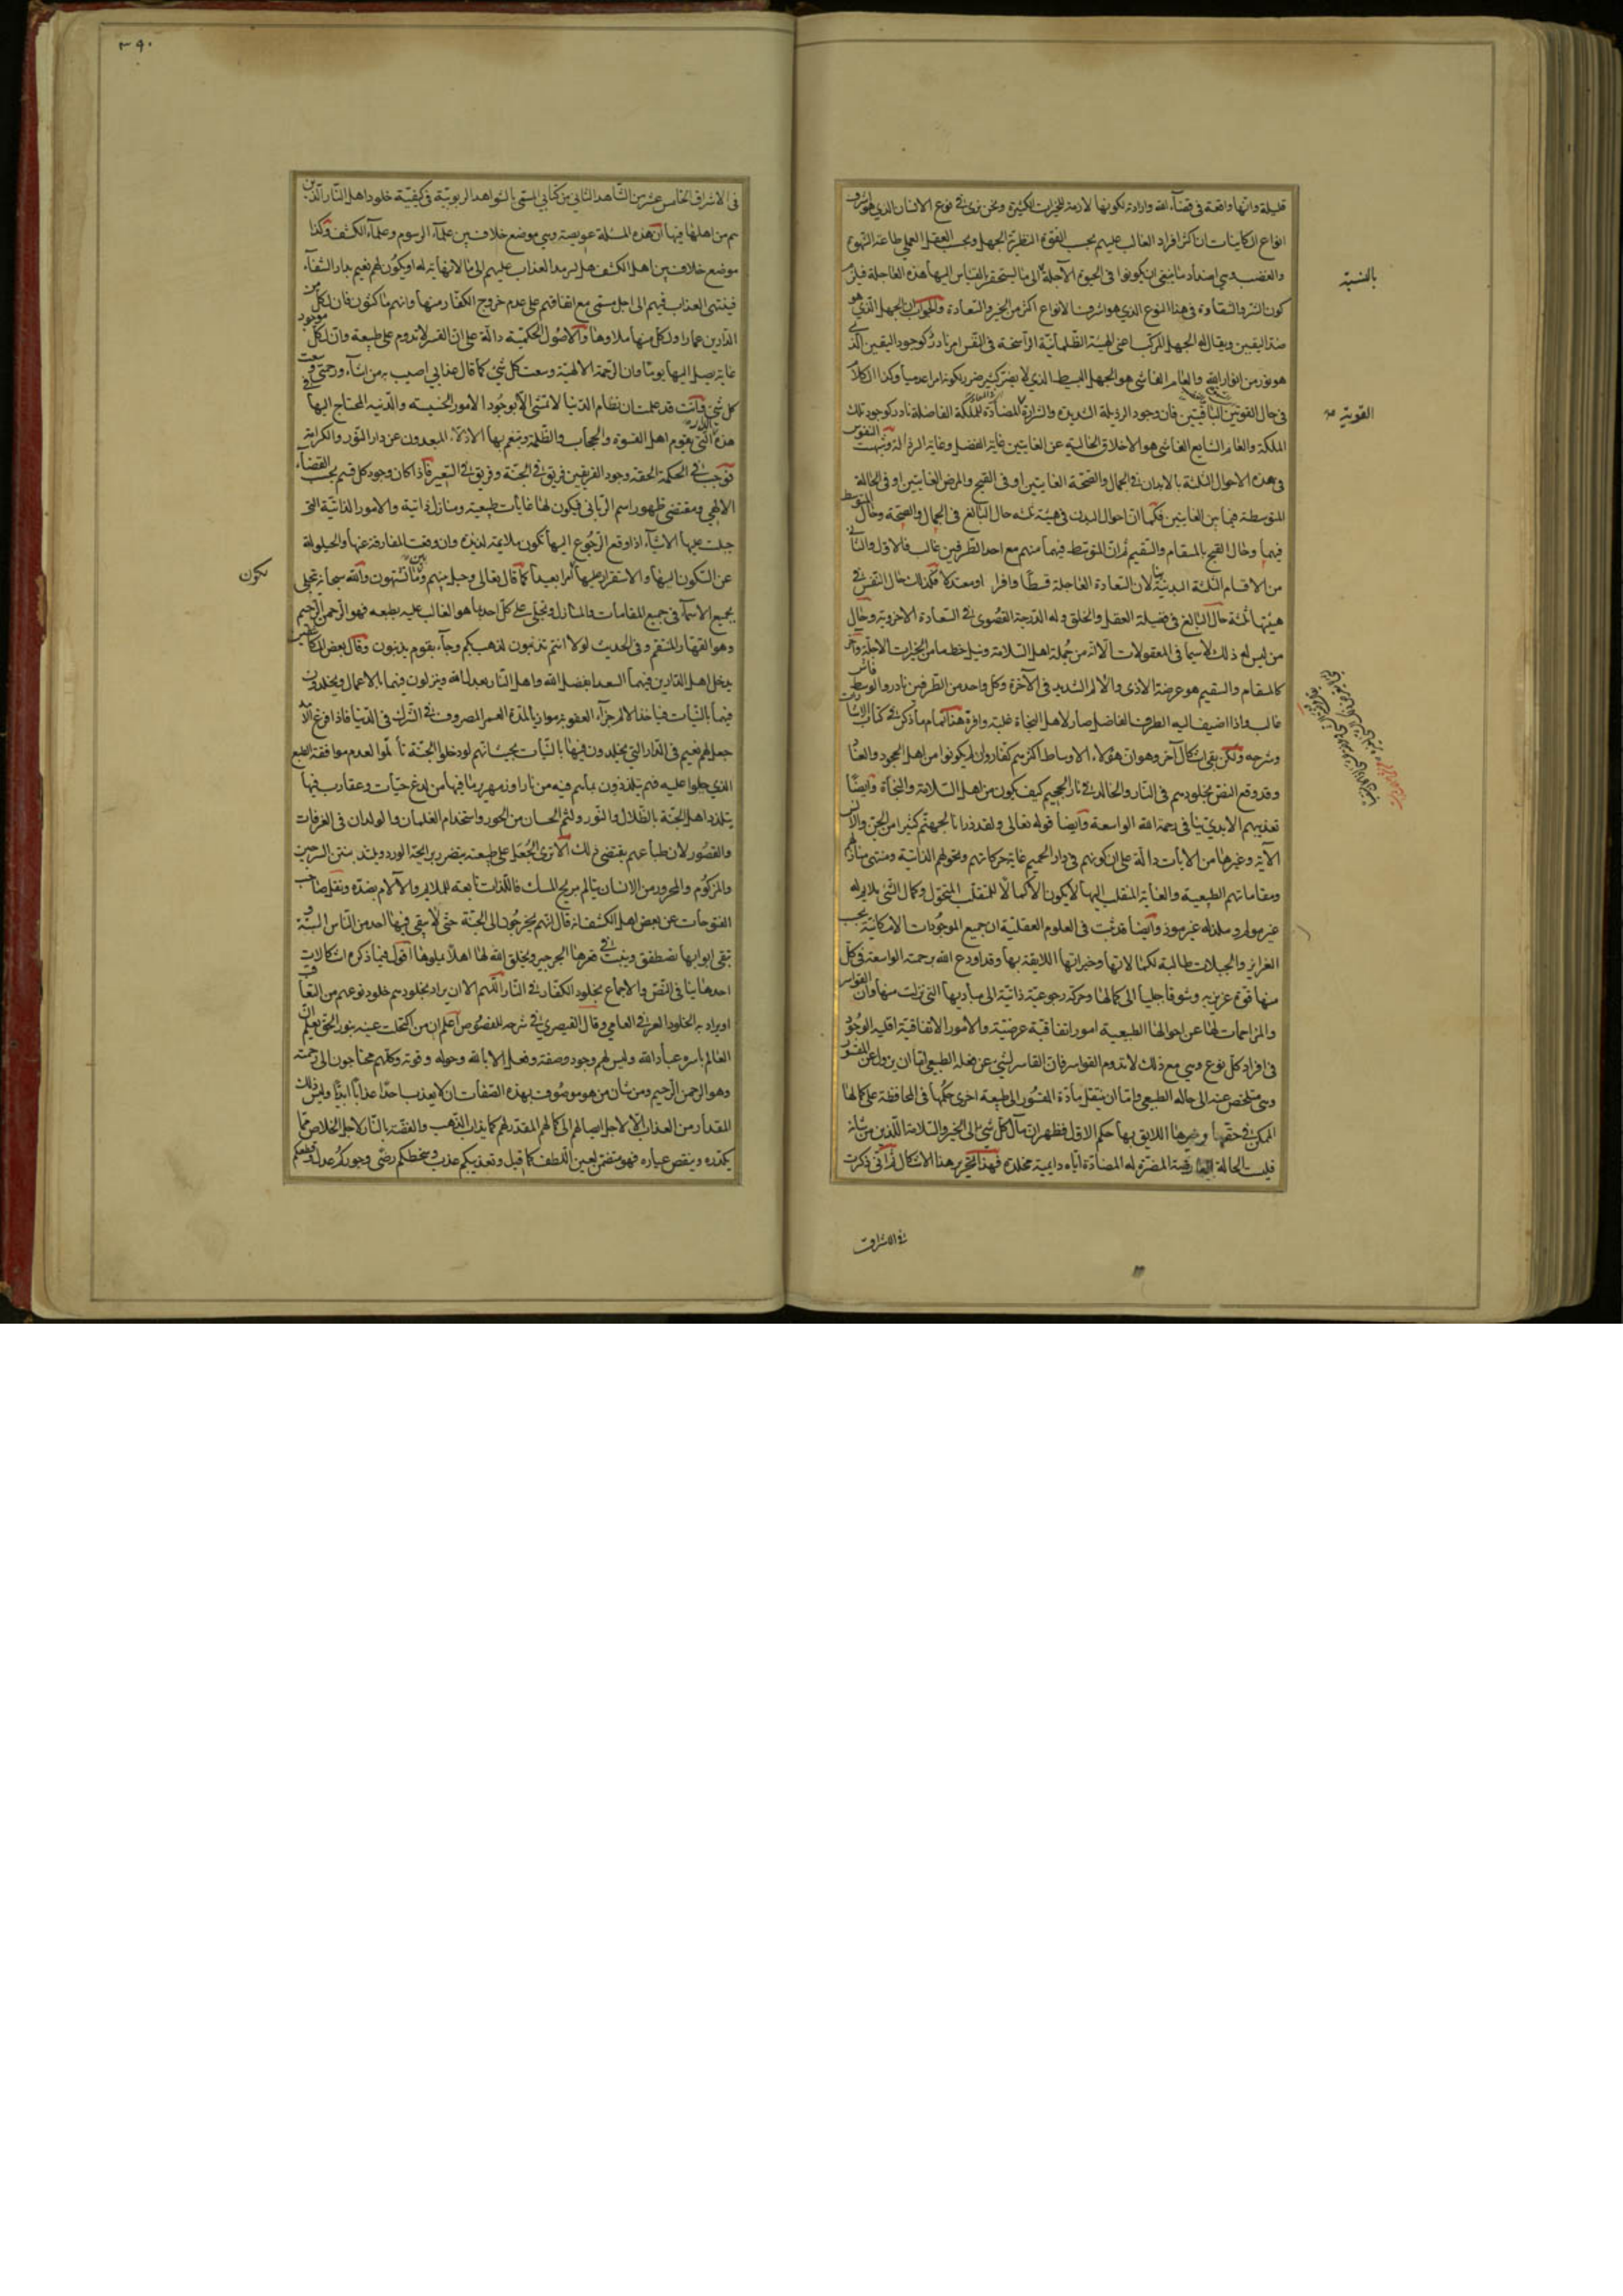 قليلة وانها واقعة فى قضاء الله وارادته لكونها لازمة للخيرات الكثيرة ونحن نرى فى نوع الانسان الذي هو اشرف
انواع الكاينات ان اكثر افراد الغالب عليهم بحسب القوة النظرية الجهل وبحسب العقل العملي طاعة الشهوة
والغضب وهي اضداد ما ينبغي ان يكونوا فى الحيوة الآجلة الى ما يستحقر بالقياس اليها هذه العاجلة فيلزم
كون الشر والشقاوة فى هذا النوع الذي هو اشرف الانواع اكثر من الخير والسعادة والجواب ان الجهل الذي هو
ضد اليقين ويقال له الجهل المركب اعني الهيئة الظلمانية الراسخة فى النفس امر نادر كوجود اليقين الذي
هو نور من انوار الله والعام الفاشي هو الجهل البسيط الذي لا يضر كثير ضرر لكونه امرا عدميا وكذا الكلام
فى حال القوتين الباقيتين فان وجود الرذيلة الشديدة والشرارة المضادة للملكة الفاضلة نادر كوجود تلك
الملكة والعام الشايع الفاشي هو الاخلاق الخالية عن الغايتين غاية الفضل وغاية الرذالة وشبهت النفوس
فى هذه الاحوال الثلثة بالابدان فى الجمال والصحة الغايتين او فى القبح والمرض الغايتين او فى الحالة
المتوسطة فيما بين الغايتين فكما ان احوال البدن فى هيئة ثلثة حال البالغ فى الجمال والصحة وحال المتوسط
فيهما وحال القبيح بالمسقام والسقيم ثم ان المتوسط فيهما منهم مع احد الطرفين غالب فالاول والثاني
من الاقسام الثلثة البدنية ينالان السعادة العاجلة قسطا وافرا او معتدلا فكذلك حال النفس فى
هيئتها ثلثة حال البالغ فى فضيلة العقل والخلق وله الدرجة القصوى فى السعادة الاخروية وحال
من ليس له ذلك لا سيما فى المعقولات الا انه من جملة اهل السلامة ونيل حظ ما من الخيرات الآجلة وآخر
كالمسقام والسقيم هو عرضة الاذى والالم الشديد فى الآخرة وكل واحد من الطرفين نادر والوسط فاش
غالب واذا اضيف اليه الطرف الفاضل صار لاهل النجاة غلبة وافرة هذا تمام ما ذكر فى كتاب الاشارات
وشرحه ولكن بقي اشكال آخر وهو ان هؤلاء الاوساط اكثرهم كفار وان لم يكونوا من اهل الجحود والعناد
وقد وقع النص بخلودهم فى النار والخالد فى نار الجحيم كيف يكون من اهل السلامة والنجاة وايضا
تعذيبهم الابدي ينافى رحمة الله الواسعة وايضا قوله تعالى ولقد ذرانا لجهنم كثيرا من الجن والانس
الآية وغيرها من الايات دالة على ان كونهم فى دار الجحيم غاية حركاتهم وتحولهم الذاتية ومنتهى منازلهم
ومقاماتهم الطبيعية والغاية المنقلب اليها لا يكون الا كمالا للمنقلب المتحول وكمال الشئ ملايم له
غير مولم وملذ له غير موذ وايضا قد ثبت فى العلوم العقلية ان جميع الموجودات الامكانية بحسب
الغرايز والجبلات طالبة لكمالاتها وخيراتها اللايقة بها وقد اودع الله برحمته الواسعة فى كل
منها قوة غريزية وشوقا جبليا الى كمالها وحركة رجوعية ذاتية الى مباديها التي نزلت منها وان القواسر
والمزاحمات لها عن احوالها الطبيعية امور اتفاقية عرضية والامور الاتفاقية اقلية الوجود
فى افراد كل نوع وهي مع ذلك لا تدوم القواسر فان القاسر لشيء عن فعله الطبيعي اما ان يزول عن المقسور
وهي متلخص عنه الى حاله الطبيعي واما ان ينقل مادة المقسور الى طبيعة اخرى حكمها فى المحافظة على كمالها
الممكن فى حقها وخيرها اللايق بها حكم الاول فظهر ان مآل كل شئ الى الخير والسلامة اللذين من شانه
فليست الحالة العارضة المضرة له المضادة اياه دايمية مخلدة فهذا تحرير هذا الاشكال ثم انى ذكرت
بالنسبة
القوتية
فى الاشراق
٣٩٠
فى الاشراق الخامس عشر من الشاهد الثاني من كتابي المسمى بالشواهد الربوبية فى كيفية خلود اهل النار الذين
هم من اهلها فيها ان هذه المسئلة عويصة وهي موضع خلاف بين علماء الرسوم وعلماء الكشف وكذا
موضع خلاف بين اهل الكشف هل يسرمد العذاب عليهم الى ما لا نهاية له او يكون لهم نعيم بدار الشقاء
فينتهي العذاب فيهم الى اجل مسمى مع اتفاقهم على عدم خروج الكفار منها وانهم ماكثون فان لكل من
الدارين عمارا ولكل منها ملاوها والاصول الحكمية دالة على ان القسر لا يدوم على طبيعة وان لكل موجود
غاية يصل اليها يوما وان الرحمة الالهية وسعت كل شئ كما قال عذابي اصيب به من اشاء ورحمتي وسعت
كل شئ وانت قد علمت ان نظام الدنيا لا تنشى الا بوجود الامور الخسيسة والدنية المحتاج اليها فى
هذه الدار التي يقوم اهل القسوة والحجاب والظلمة ويتنعم بها الاذلاء المبعدون عن دار النور والكرامة
فوجب فى الحكمة الحقة وجود الفريقين فريق فى الجنة وفريق فى السعير فاذا كان وجود كل قسم بحسب القضاء
الالهي ومقتضى ظهور اسم الرباني فيكون لها غايات طبيعية ومنازل ذاتية والامور الذاتية التي
جبلت عليها الاشياء اذا وقع الرجوع اليها تكون ملايمة لذيذة وان وقعت المفارقة عنها والحيلولة
عن السكون اليها والاستقرار عليها أمرا بعيدا كما قال تعالى وحيل بينهم وبين ما يشتهون والله سبحانه تجلى
بجميع الاسماء فى جميع المقامات والمنازل وتجلى على كل احد بما هو الغالب عليه بطبعه فهو الرحمن الرحيم
وهو القهار المنتقم وفى الحديث لولا انتم تذنبون لذهب بكم وجاء بقوم يذنبون وقال بعض المكاشفين
يدخل اهل الدارين فيهما السعداء بفضل الله واهل النار بعدل الله وينزلون فيهما بالاعمال ويخلدون
فيهما بالنيات فياخذ الالم جزاء العقوبة موازيا لمدة العمر المصروف فى الشرك فى الدنيا فاذا فرغ الامد
جعل لهم نعيم فى الدار التي يخلدون فيها بالنيات بحيث انهم لو دخلوا الجنة تألموا لعدم موافقة الطبع
الذي جبلوا عليه فهم يتلذذون بما هم فيه من نار او زمهرير وما فيها من لدغ حيات وعقارب فيها
يتلذذ اهل الجنة بالظلال والنور ولثم الحسان من الحور واستخدام الغلمان والولدان فى الغرفات
والقصور لان طباعهم يقتضى ذلك الا ترى الجعل على طبيعته يتضرر برايحة الورد ويلتذ بنتن السرجين
والمزكوم والمحرور من الانسان يتالم بريح المسك فاللذات تابعة للملايم والآلام بضده ونقل صاحب
الفتوحات عن بعض اهل الكشف انه قال انهم يخرجون الى الجنة حتى لا يبقى فيها احد من الناس البتة و
تبقى ابوابها تصطفق وينبت فى قعرها الجرجير ويخلق الله لها اهلا يملوها اقول فيما ذكره اشكالات
احدها ينافى النص والاجماع بخلود الكفار فى النار اللهم الا ان يراد بخلودهم خلود نوعهم من التعاقب
او يراد به الخلود العرفى العامي وقال القيصري فى شرحه للفصوص اعلم ان من اكتحلت عينه بنور الحق يعلم ان
العالم باسره عباد الله وليس لهم وجود وصفة وفعل الا بالله وحوله وقوته وكلهم محتاجون الى رحمته
وهو الرحمن الرحيم ومن شان من هو موصوف بهذه الصفات ان لا يعذب احدا عذابا ابديا وليس ذلك
المقدار من العذاب الا لاجل ايصالهم الى كمالهم المقدر لهم كما يذاب الذهب والفضة بالنار لاجل الخلاص مما
يكدره وينقص عياره فهو متضمن لعين اللطف كما قيل وتعذيبكم عذب وسخطكم رضى وجوركم عدل وقطعكم
يكون